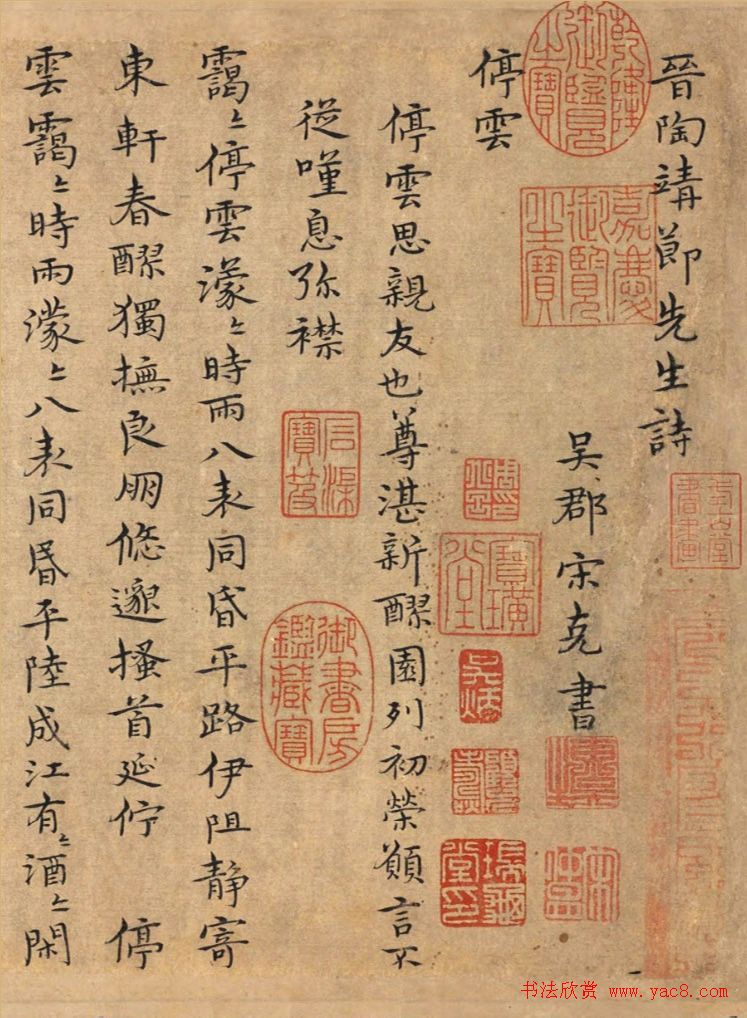 晉陶靖節先生詩
吳郡宋克書
停雲
停雲思親友也尊湛新醪園列初榮願言不
從嘆息弥襟
靄〻停雲濛〻時雨八表同昏平路伊阻靜寄
東軒春醪獨撫良朋悠邈搔首延佇 停
雲靄〻時雨濛〻八表同昏平陸成江有〻酒〻閑
乾隆御覽之寶
嘉慶御覽之寶
石渠寶笈
御書房鑑藏寶
书法欣赏 www.yac8.com